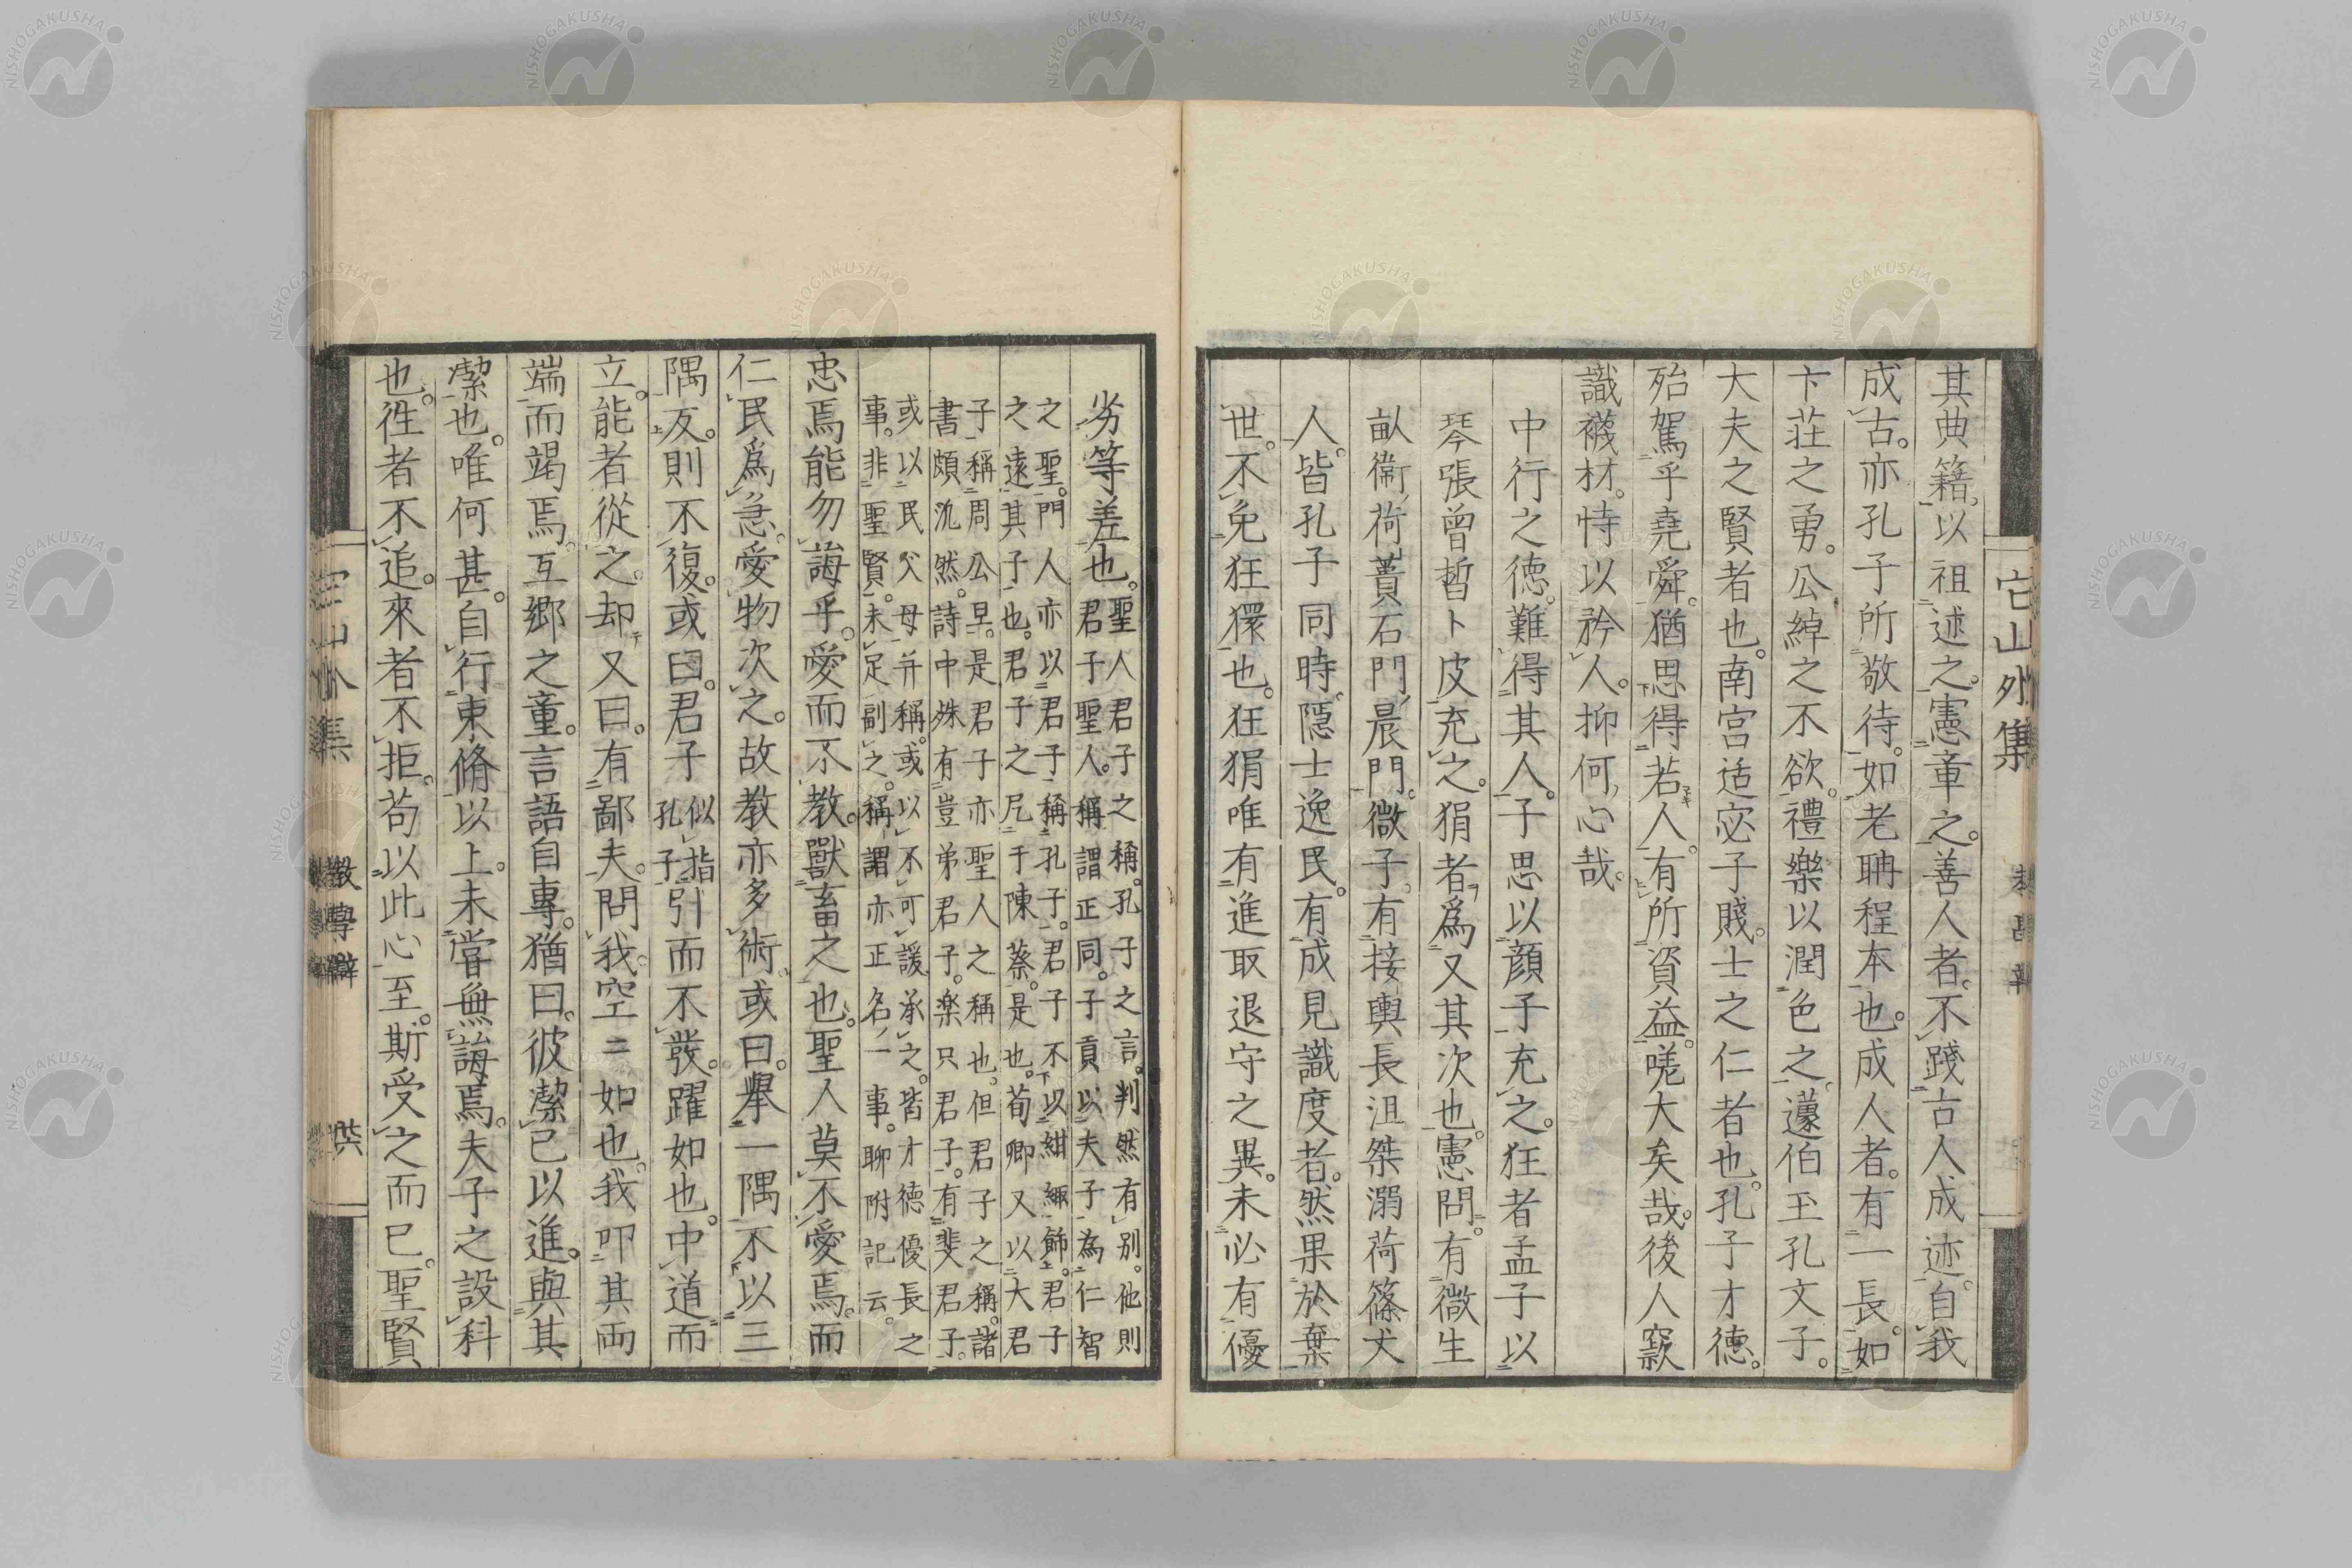 它山外集
其典籍以祖述之憲章之。善人者。不踐古人成迹。自我
成古。亦孔子所敬待。如老聃程本也。成人者。有一長。如
卞莊之勇。公綽之不欲。禮樂以潤色之。蘧伯玉孔文子。
大夫之賢者也。南宮适宓子賤。士之仁者也。孔子才德。
殆駕乎堯舜。猶思得若人。有所資益。嗟大矣哉。後人窾
識襪材。恃以矜人。抑何心哉。
中行之德。難得其人。子思以顏子充之。狂者孟子以
琴張曾晳卜皮充之。狷者。為又其次也。憲問。有微生
畝衞荷蕢石門晨門。微子。有接輿長沮桀溺荷篠丈
人。皆孔子同時。隱士逸民。有成見識度者。然果於棄
世。不免狂獧也。狂狷唯有進取退守之異。未必有優
劣等差也。聖人君子之稱。孔子之言。判然有別。他則
君子聖人。稱謂正同。子貢以夫子為仁智
之聖。門人亦以君子稱孔子。君子不以紺緅飾。君子
之遠其子也。君子之戹于陳蔡。是也。荀卿又以大君
子稱周公旦。是君子亦聖人之稱也。但君子之稱。諸
書頗汎然。詩中殊有豈弟君子。楽只君子。有斐君子。
或以民父母并稱。或以不可諼承之。皆才德優長之
事。非聖賢。未足副之。稱謂亦正名一事。聊附記云。
忠焉能勿誨乎。愛而不教。獸畜之也。聖人莫不愛焉。而
仁民爲急。愛物次之。故教亦多術。或曰。擧一隅不以三
隅反。則不復。或曰。君子似指孔子引而不發。躍如也。中道而
立。能者從之。却又曰。有鄙夫。問我。空〻如也。我叩其両
端而竭焉。互郷之童。言語自專。猶曰。彼潔已以進。與其
潔也。唯何甚。自行束脩以上。未甞無誨焉。夫子之設科
也。徃者不追。來者不拒。苟以此心至。斯受之而已。聖賢
教學辯